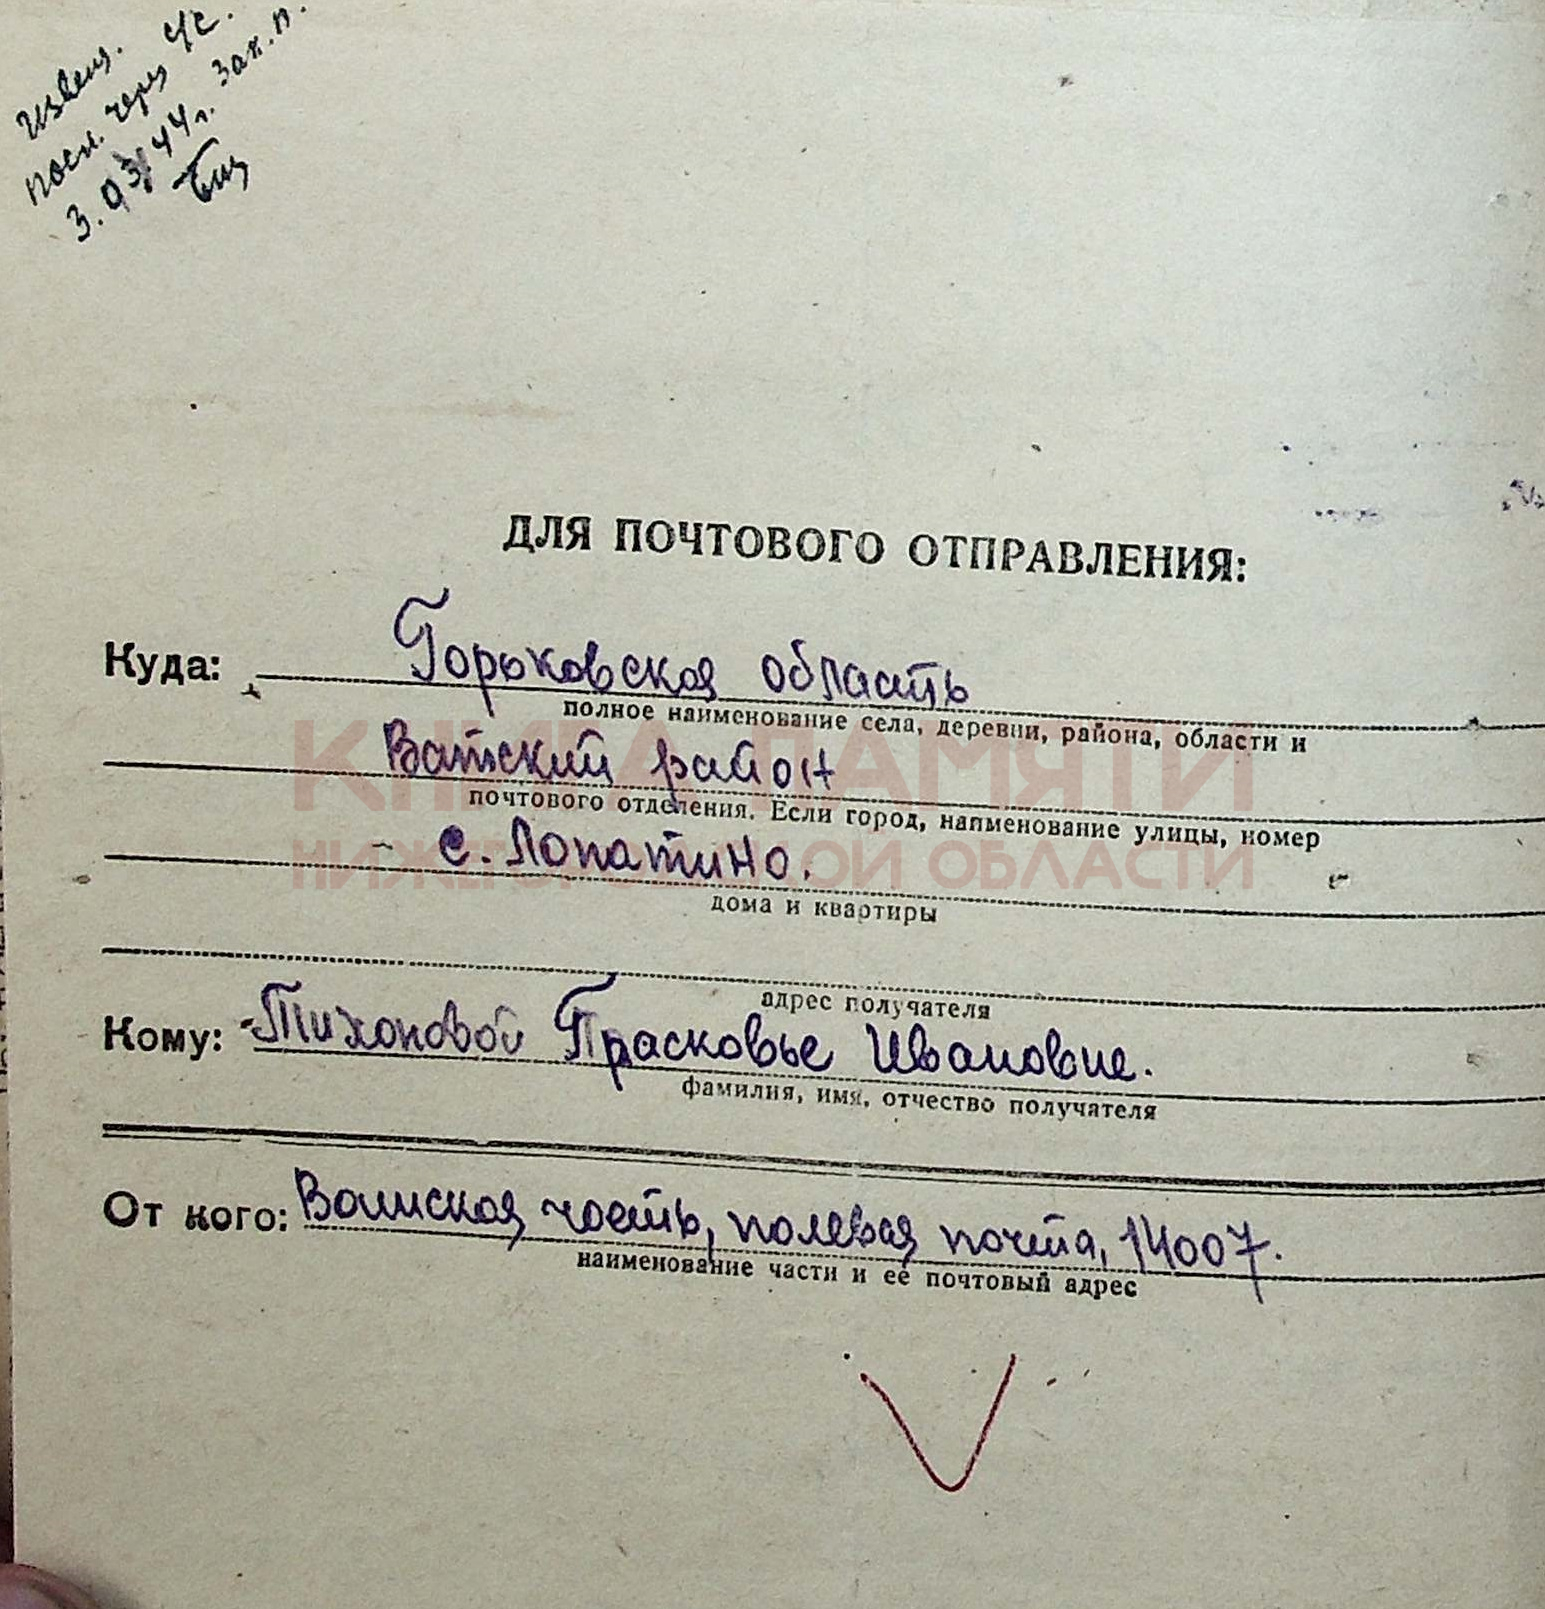 Извещ.
посл. через с/с.
3.03.44 г. Зак. п.
ДЛЯ ПОЧТОВОГО ОТПРАВЛЕНИЯ:
Куда: Горьковская область
полное наименование села, деревни, района, области и
Вачский район
почтового отделения. Если город, наименование улицы, номер
с. Лопатино.
дома и квартиры
адрес получателя
Кому: Тихоновой Прасковье Ивановне.
фамилия, имя, отчество получателя
От кого: Воинская часть, полевая почта, 14007.
наименование части и её почтовый адрес
КНИГА ПАМЯТИ
НИЖЕГОРОДСКОЙ ОБЛАСТИ